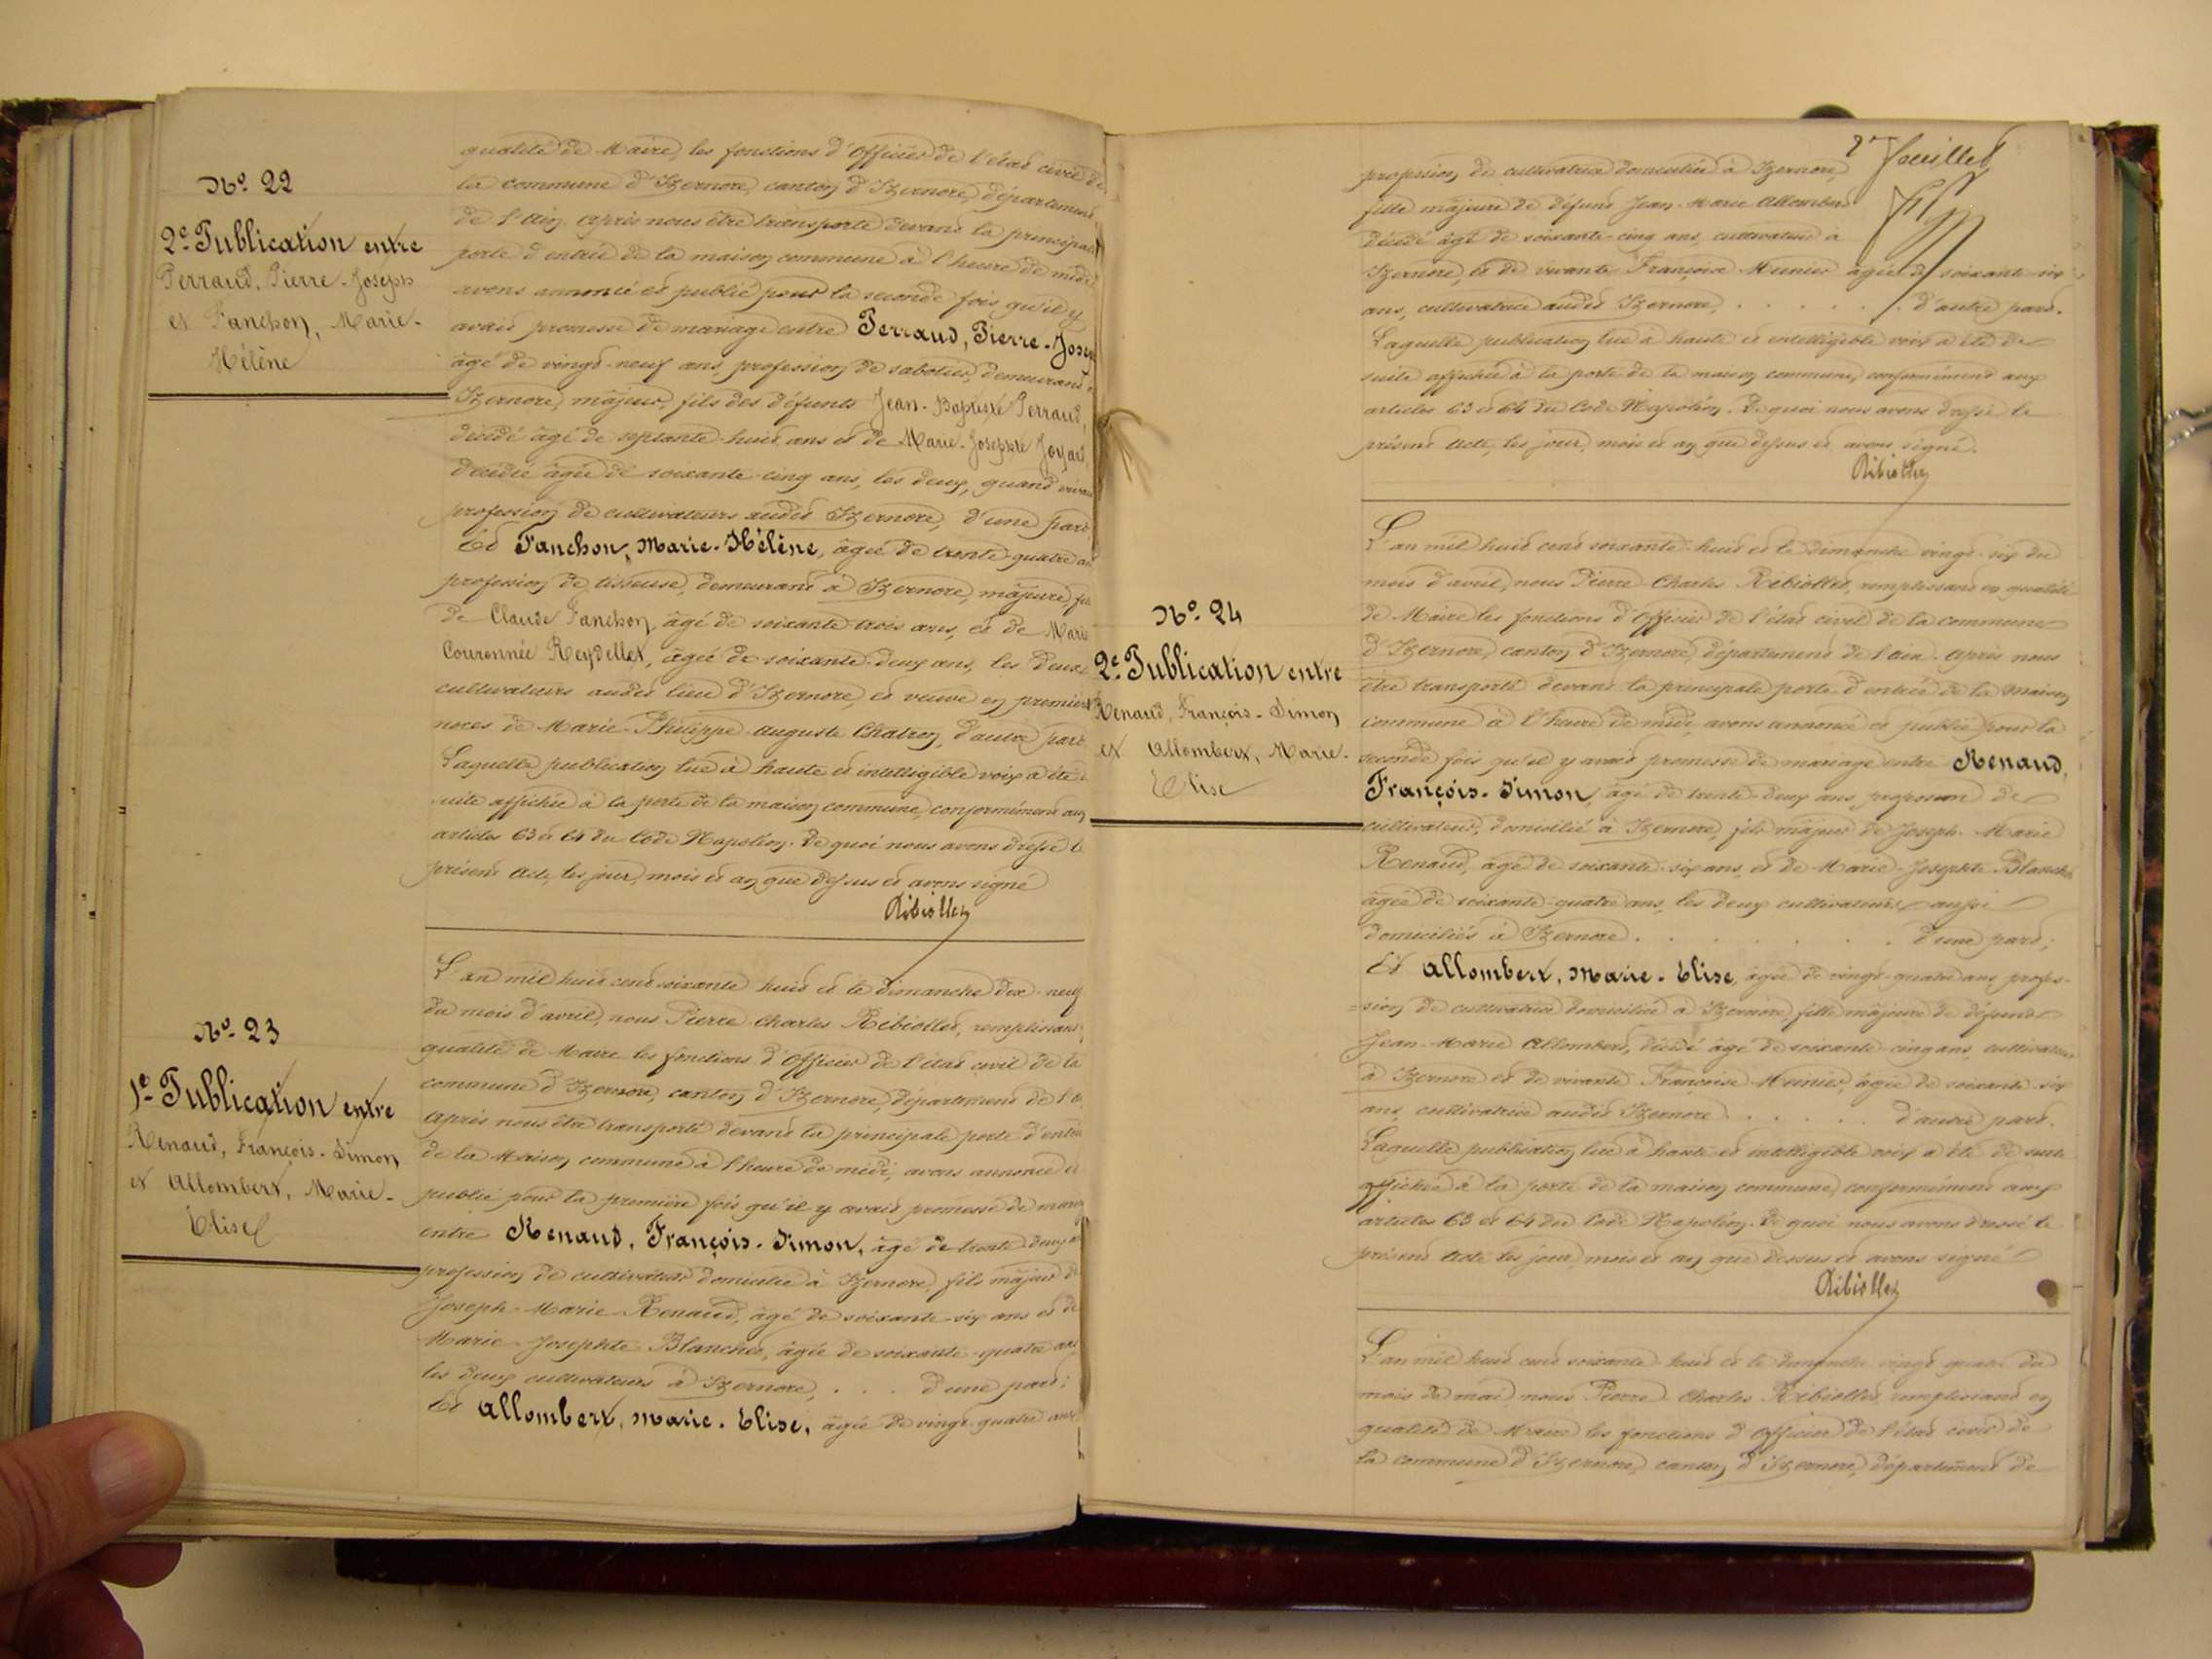 qualité de Maire, les fonctions d'Officier de l'état civil de
la commune d'Izernore, canton d'Izernore, département
de l'Ain. Après nous être transporté devant la principale
porte d'entrée de la maison commune à l'heure de midi
avons annoncé et publié pour la seconde fois qu'il y
avait promesse de mariage entre Perraud, Pierre-Josep
âgé de vingt-neuf ans, profession de sabotier, demeurant
Izernore, majeur, fils des défunts Jean-Baptiste Perraud,
décédé âgé de septante-huit ans et de Marie-Josephte
décédée âgée de soixante-cinq ans, les deux, quand
profession de cultivateurs audit Izernore, d'une part
Et Panchon, Marie-Hélène, âgée de trente-quatre an
profession de tisseuse, demeurant à Izernore, majeure,
de Claude Panchon âgé de soixante-trois ans, et de Marie
Couronnée Reydellet, âgée de soixante-deux ans, les deux
cultivateurs audit lieu d'Izernore, et veuve en premières
noces de Marie-Philippe-Auguste Chatron, d'autre part
Laquelle publication lue à haute et intelligible voix a été
suite affichée à la porte de la maison commune, conformément aux
articles 63 et 64 du Code Napoléon. De quoi nous avons dressé le
présent acte, les jour, mois et an que dessus et avons signé
Ribiollet
Nº 22
2e Publication entre
Perraud, Pierre-Joseph
et Panchon, Marie-
Hélène
Nº 23
1e Publication entre
Renaud, François-Simon
et Allombert, Marie-
Elise
L'an mil huit cent soixante huit et le dimanche dix-neuf
du mois d'avril, nous Pierre-Charles Ribiollet, remplissant
qualité de Maire les fonctions d'Officier de l'état civil de la
commune d'Izernore, canton d'Izernore, département de l'
Après nous être transporté devant la principale porte d'entrée
de la Maison commune à l'heure de midi, avons annoncé et
publié pour la première fois qu'il y avait promesse de mariag
entre Renaud, François-Simon, âgé de trente-deux a
profession de cultivateur domicilié à Izernore, fils majeur de
Joseph-Marie Renaud, âgé de soixante-six ans et de
Marie-Josephte Blanchet, âgée de soixante-quatre ans
les deux cultivateurs à Izernore, . . . d'une part;
Et Allombert, Marie-Elise, âgée de vingt-quatre ans
2e feuillet
profession de cultivatrice domiciliée à Izernore,
fille majeure de défunt Jean-Marie Allombert
décédé âgé de soixante-cinq ans, cultivateur à
Izernore, et de vivante Françoise Meunier âgée de soixante-six
ans, cultivatrice audit Izernore, . . . . . d'autre part.
Laquelle publication lue à haute et intelligible voix a été de
suite affichée à la porte de la maison commune, conformément aux
articles 63 et 64 du Code Napoléon. De quoi nous avons dressé le
présent acte, les jour, mois et an que dessus et avons signé.
Ribiollet
Nº 24
2e Publication entre
Renaud, François-Simon
et Allombert, Marie-
Elise
L'an mil huit cent soixante-huit et le dimanche vingt-six du
mois d'avril, nous Pierre-Charles Ribiollet, remplissant en qualité
de Maire les fonctions d'Officier de l'état civil de la commune
d'Izernore, canton d'Izernore, département de l'Ain. Après nous
être transporté devant la principale porte d'entrée de la maison
commune à l'heure de midi, avons annoncé et publié pour la
seconde fois qu'il y avait promesse de mariage entre Renaud,
François-Simon, âgé de trente-deux ans, profession de
cultivateur, domicilié à Izernore, fils majeur de Joseph-Marie
Renaud, âgé de soixante-six ans, et de Marie-Josephte Blanchet
âgée de soixante-quatre ans, les deux cultivateurs aussi
domiciliés à Izernore . . . . . . . d'une part;
Et Allombert, Marie-Elise, âgée de vingt-quatre ans, profes-
=sion de cultivatrice domiciliée à Izernore, fille majeure de défunt
Jean-Marie Allombert, décédé âgé de soixante-cinq ans, cultivateur
à Izernore et de vivante Françoise Meunier, âgée de soixante-six
ans, cultivatrice audit Izernore . . . . . d'autre part.
Laquelle publication lue à haute et intelligible voix a été de suite
affichée à la porte de la maison commune, conformément aux
articles 63 et 64 du Code Napoléon. De quoi nous avons dressé le
présent acte les jour, mois et an que dessus et avons signé
Ribiollet
L'an mil huit cent soixante-huit et le dimanche vingt-quatre du
mois de mai, nous Pierre-Charles Ribiollet remplissant en
qualité de Maire les fonctions d'Officier de l'état civil de
la commune d'Izernore, canton d'Izernore, département de